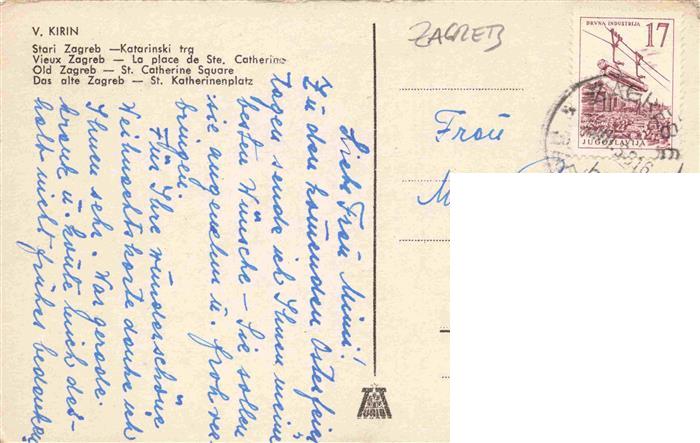 V. KIRIN
Stari Zagreb — Katarinski trg
Vieux Zagreb — La place de Ste. Catherine
Old Zagreb — St. Catherine Square
Das alte Zagreb — St. Katherinenplatz
ZAGREB
DRVNA INDUSTRIJA
17
JUGOSLAVIJA
ZAGREB
Frau
M
Liebe Frau Mimi!
Zu den kommenden Osterfeier
tagen sende ich Ihnen meine
besten Wünsche - Sie sollen
sie angenehm u. froh ver
bringen.
Für Ihre wunderschöne
Weihnachtskarte danke ich
Ihnen sehr. War gerade
krank u. konnte mich des-
halb nicht früher bedanken.